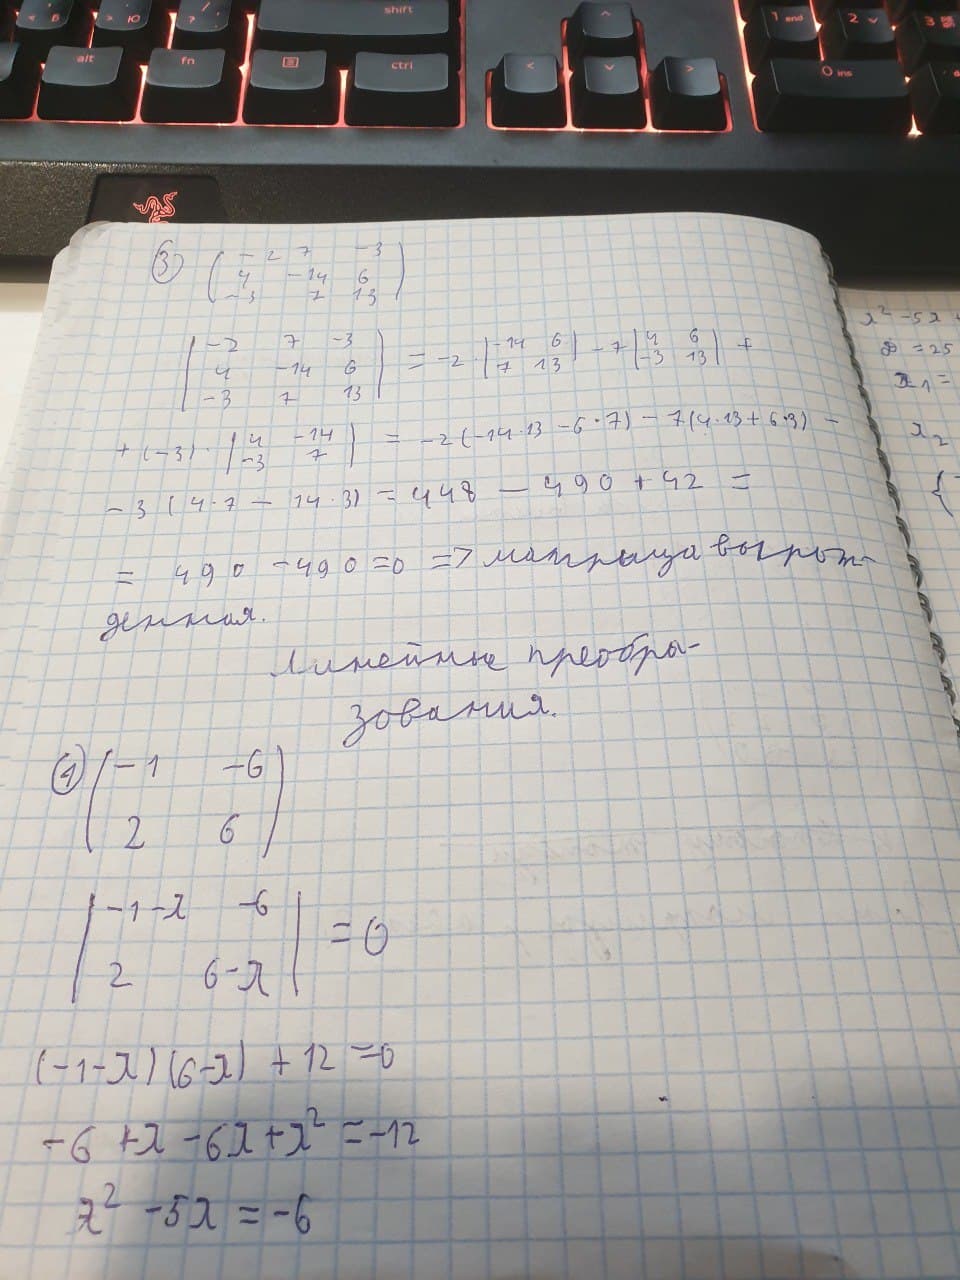 shift
< Б
> Ю
/ ?
^
1 end
2
3
alt
fn
ctrl
<
>
0 ins
③ ( -2 7 -3
4 -14 6
-3 7 13 )
| -2 7 -3
4 -14 6
-3 7 13 | = -2 · | -14 6
7 13 | - 7 | 4 6
-3 13 | +
+ (-3) · | 4 -14
-3 7 | = -2(-14·13 - 6·7) - 7(4·13 + 6·3) -
- 3 (4·7 - 14·3) = 448 - 490 + 42 =
= 490 - 490 = 0 => матрица вырож-
денная.
Линейные преобра-
зования.
① ( -1 -6
2 6 )
| -1-λ -6
2 6-λ | = 0
(-1-λ)(6-λ) + 12 = 0
-6 + λ - 6λ + λ² = -12
λ² - 5λ = -6
λ² - 5λ
D = 25
λ₁ =
λ₂
{